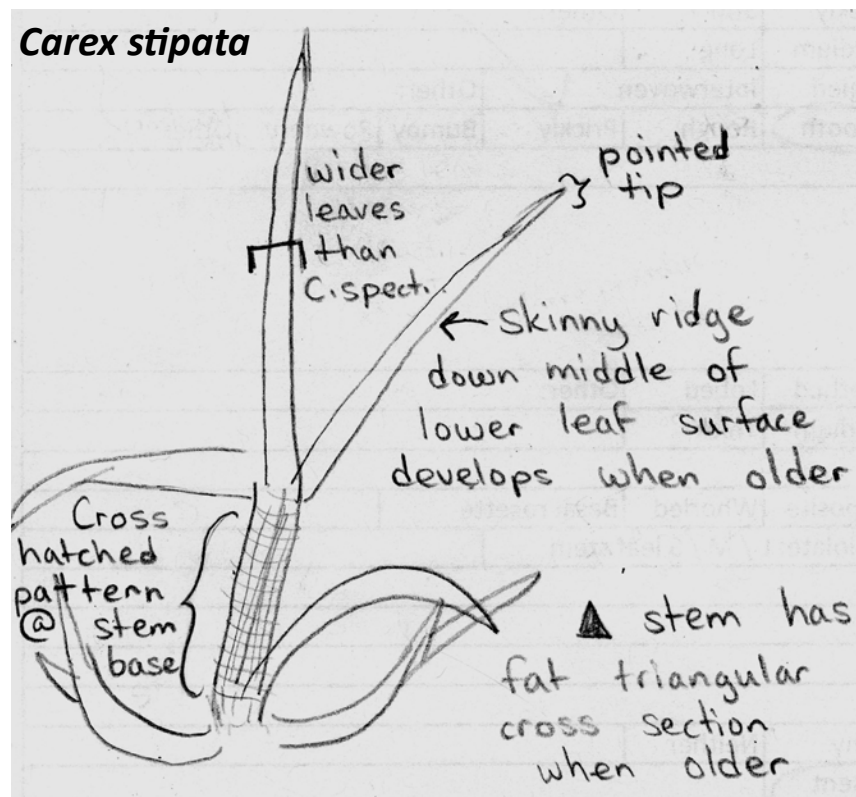 Carex stipata
wider
leaves
than
C.spect.
pointed
tip
← skinny ridge
down middle of
lower leaf surface
develops when older
Cross
hatched
pattern
@ stem
base
▲ stem has
fat triangular
cross section
when older